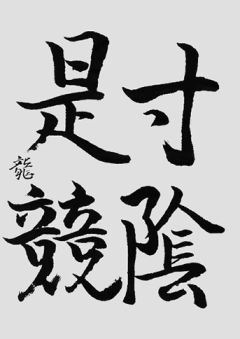 寸陰
是競
龍